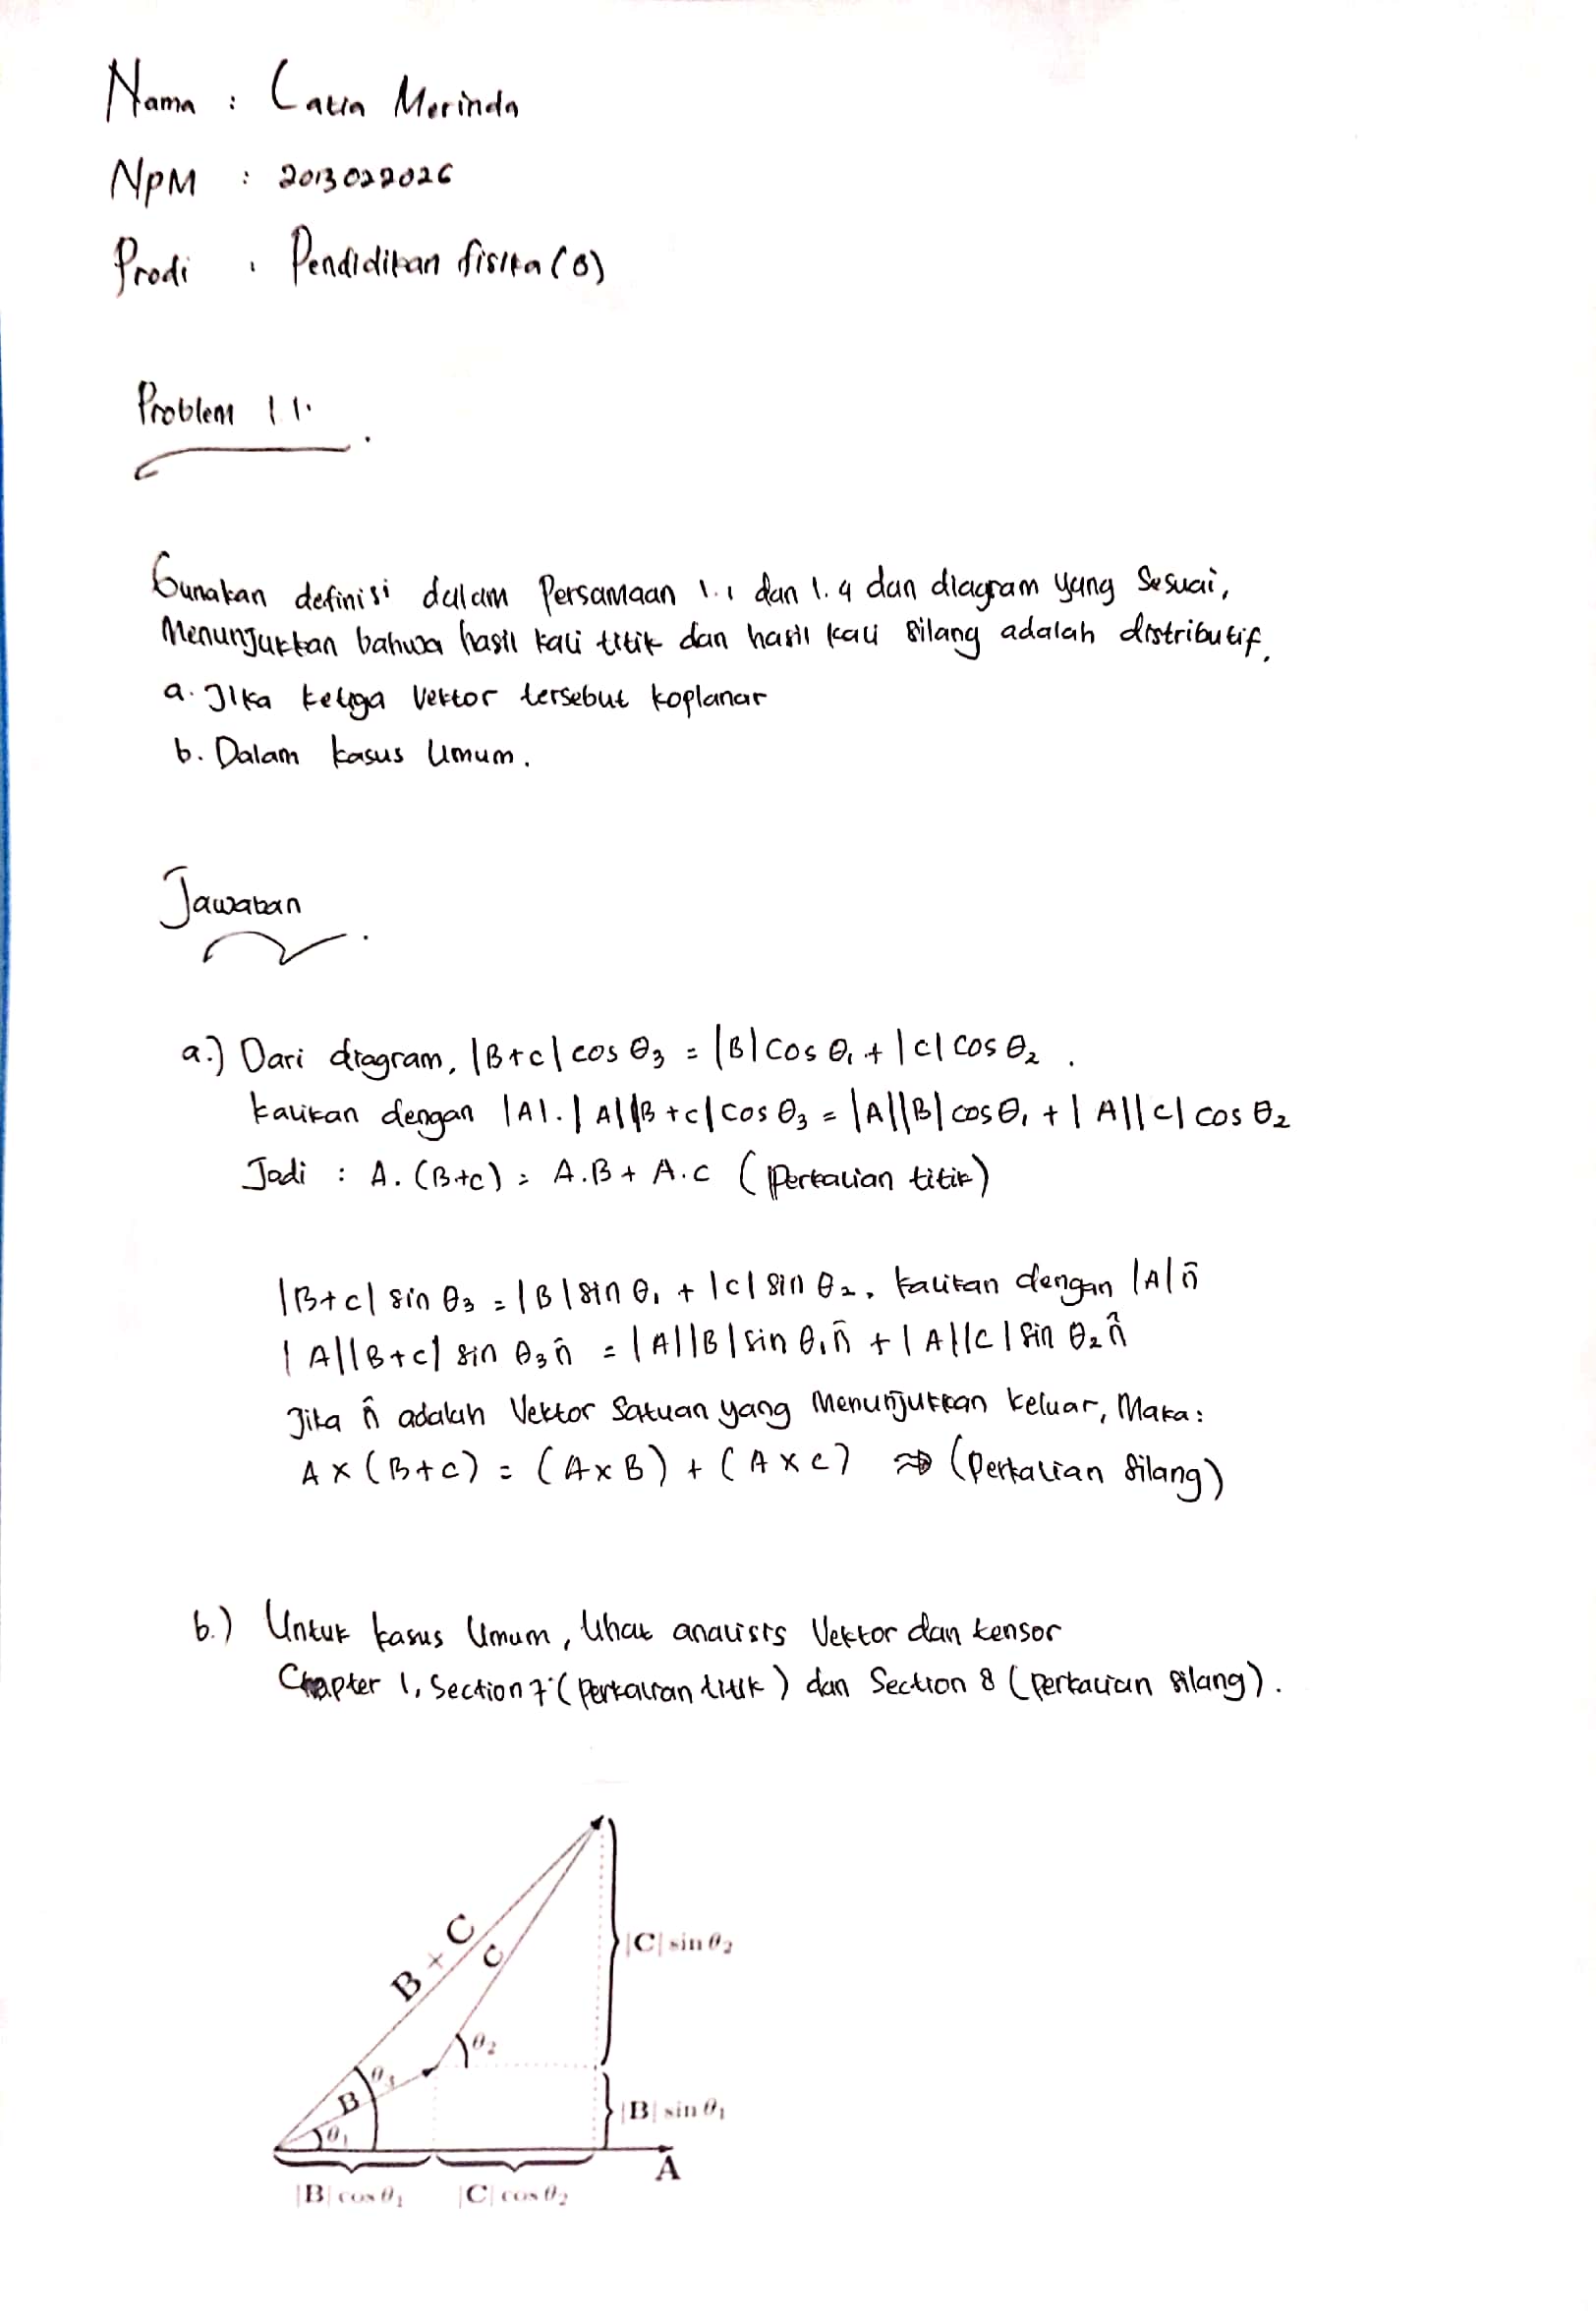 Nama : Catia Morinda
NPM : 2013022026
Prodi : Pendidikan fisika (B)
Problem 1.1.
Gunakan definisi dalam Persamaan 1.1 dan 1.4 dan diagram yang Sesuai,
Menunjukkan bahwa hasil kali titik dan hasil kali silang adalah distributif.
a. Jika ketiga Vektor tersebut koplanar
b. Dalam kasus Umum.
Jawaban
a.) Dari diagram, |B+C| cos θ₃ = |B| cos θ₁ + |C| cos θ₂ .
kalikan dengan |A|. |A||B+C| cos θ₃ = |A||B| cos θ₁ + |A||C| cos θ₂
Jadi : A. (B+C) = A.B + A.C (Perkalian titik)
|B+C| sin θ₃ = |B| sin θ₁ + |C| sin θ₂, kalikan dengan |A| n̂
|A||B+C| sin θ₃ n̂ = |A||B| sin θ₁ n̂ + |A||C| sin θ₂ n̂
Jika n̂ adalah Vektor Satuan yang Menunjukkan keluar, Maka:
A × (B+C) = (A×B) + (A×C) ⇒ (Perkalian Silang)
b.) Untuk kasus Umum, lihat analisis Vektor dan tensor
Chapter 1, Section 7 (Perkalian titik) dan Section 8 (Perkalian silang).
B + C
C
|C| sin θ₂
θ₂
θ₃
B
|B| sin θ₁
θ₁
A
|B| cos θ₁ |C| cos θ₂